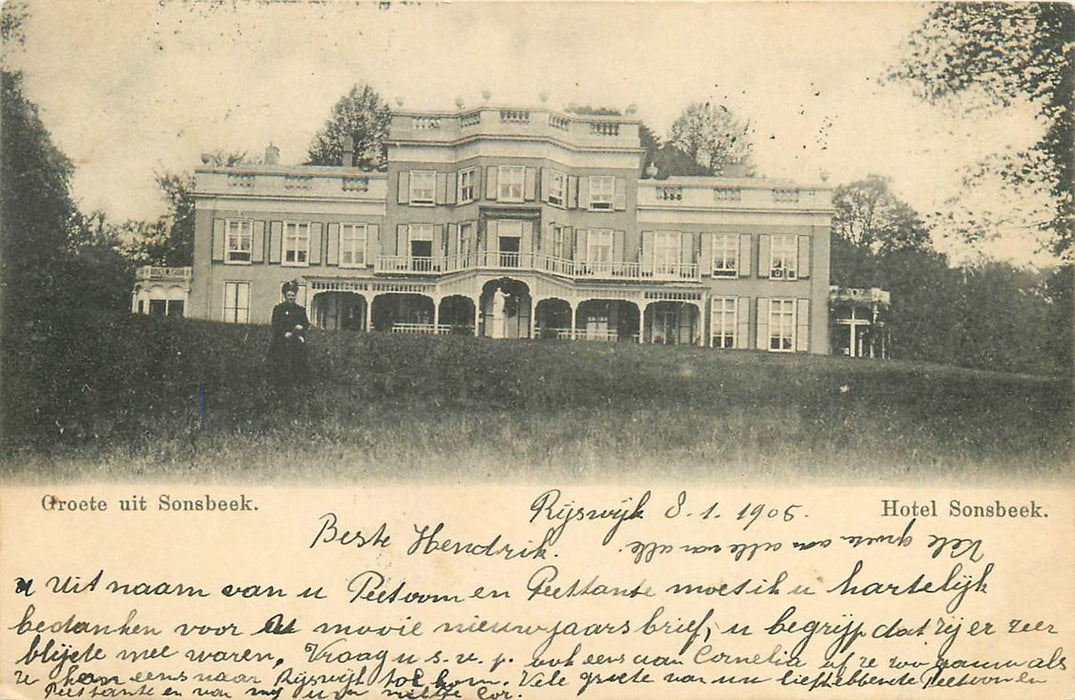 Groete uit Sonsbeek.
Hotel Sonsbeek.
Rijswijk 8.1.1905.
Beste Hendrik.
Vele groete van alle van alle.
Uit naam van u Peetoom en Peettante moet ik u hartelijk
bedanken voor u mooie nieuwjaarsbrief, u begrijp dat zij er zeer
blijde mee waren. Vraag u s.v.p. ook eens aan Cornelia of ze zoo gauw als
u kan eens naar Rijswijk tol kom. Vele groete van uw liefhebbende Peetoom en
Peettante en van mij u